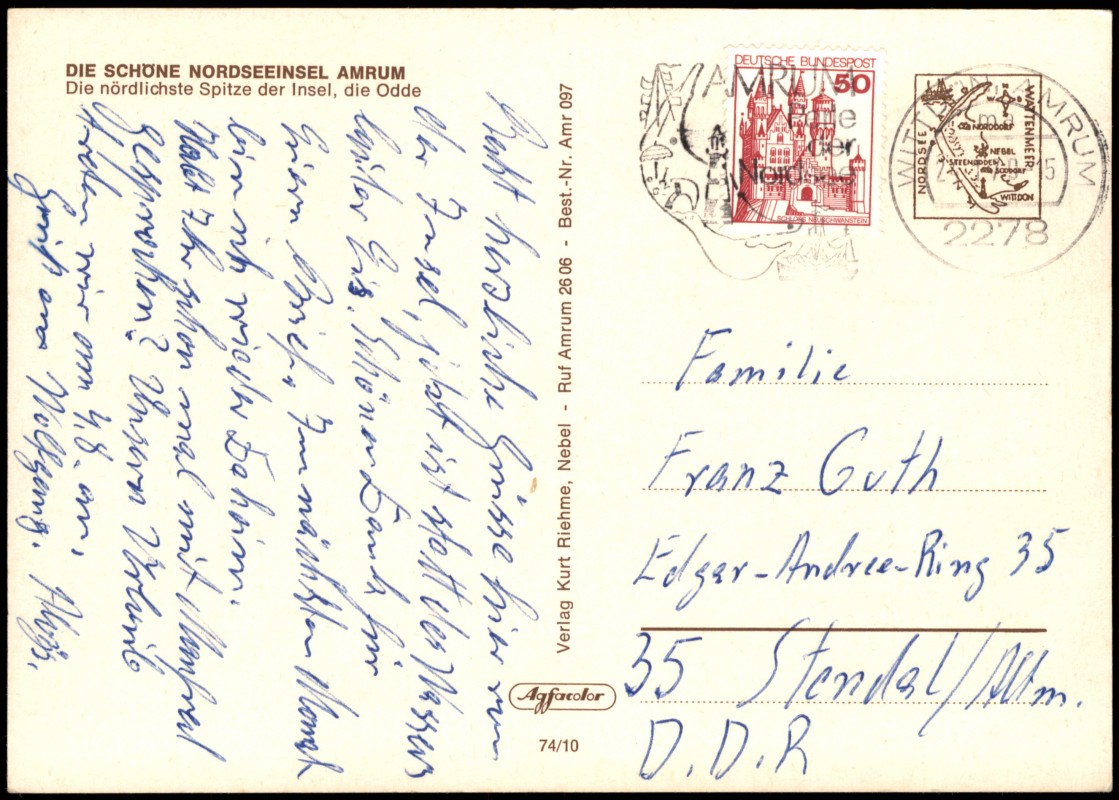 DIE SCHÖNE NORDSEEINSEL AMRUM
Die nördlichste Spitze der Insel, die Odde
Recht herzliche Grüsse hier von
der Insel, jetzt ist statt des Wassers
hier Eis. Schönen Dank für
Euren Brief. Im nächsten Monat
bin ich wieder daheim.
Habt Ihr schon mal mit Manfred
gesprochen? Unsern Urlaub
treten wir am 4.8. an.
Gruß von Wolfgang.
Verlag Kurt Riehme, Nebel - Ruf Amrum 26 06 - Best.-Nr. Amr 097
Agfacolor
74/10
AMRUM
Perle
der
Nordsee
DEUTSCHE BUNDESPOST
50
SCHLOSS NEUSCHWANSTEIN
WITTDÜN AMRUM
2278
NORDSEE
WATTENMEER
NORDDORF
NEBEL
STEENODDE
SÜDDORF
WITTDÜN
Familie
Franz Guth
Edgar-Andree-Ring 35
35 Stendal/Altm.
D.D.R